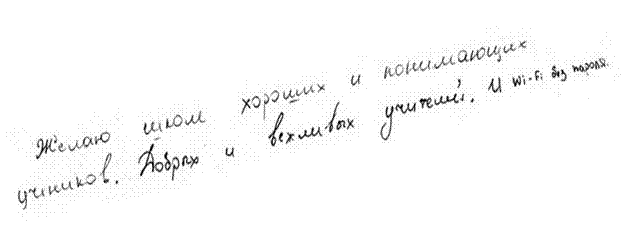 Желаю школ хороших и понимающих
учеников. Добрых и вежливых учителей. И Wi-Fi без пароля.